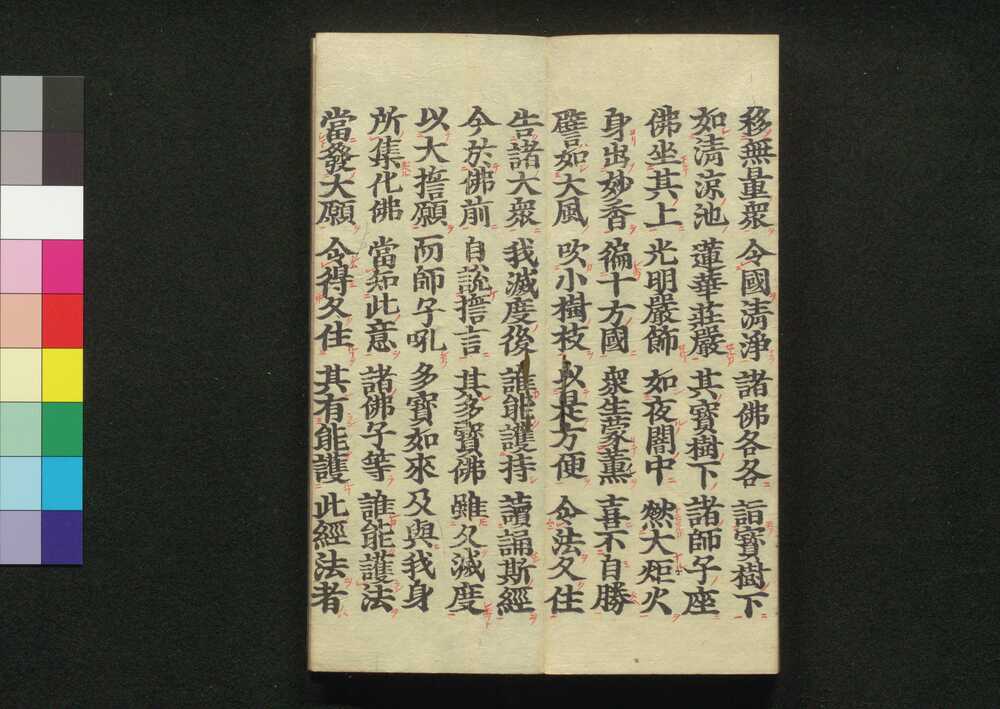 移無量衆 令國清淨 諸佛各各 詣寶樹下
如清涼池 蓮華莊嚴 其寶樹下 諸師子座
佛坐其上 光明嚴飾 如夜闇中 燃大炬火
身出妙香 徧十方國 衆生蒙薫 喜不自勝
譬如大風 吹小樹枝 以是方便 令法久住
告諸大衆 我滅度後 誰能護持 讀誦斯經
今於佛前 自說誓言 其多寶佛 雖久滅度
以大誓願 而師子吼 多寶如來 及與我身
所集化佛 當知此意 諸佛子等 誰能護法
當發大願 令得久住 其有能護 此經法者